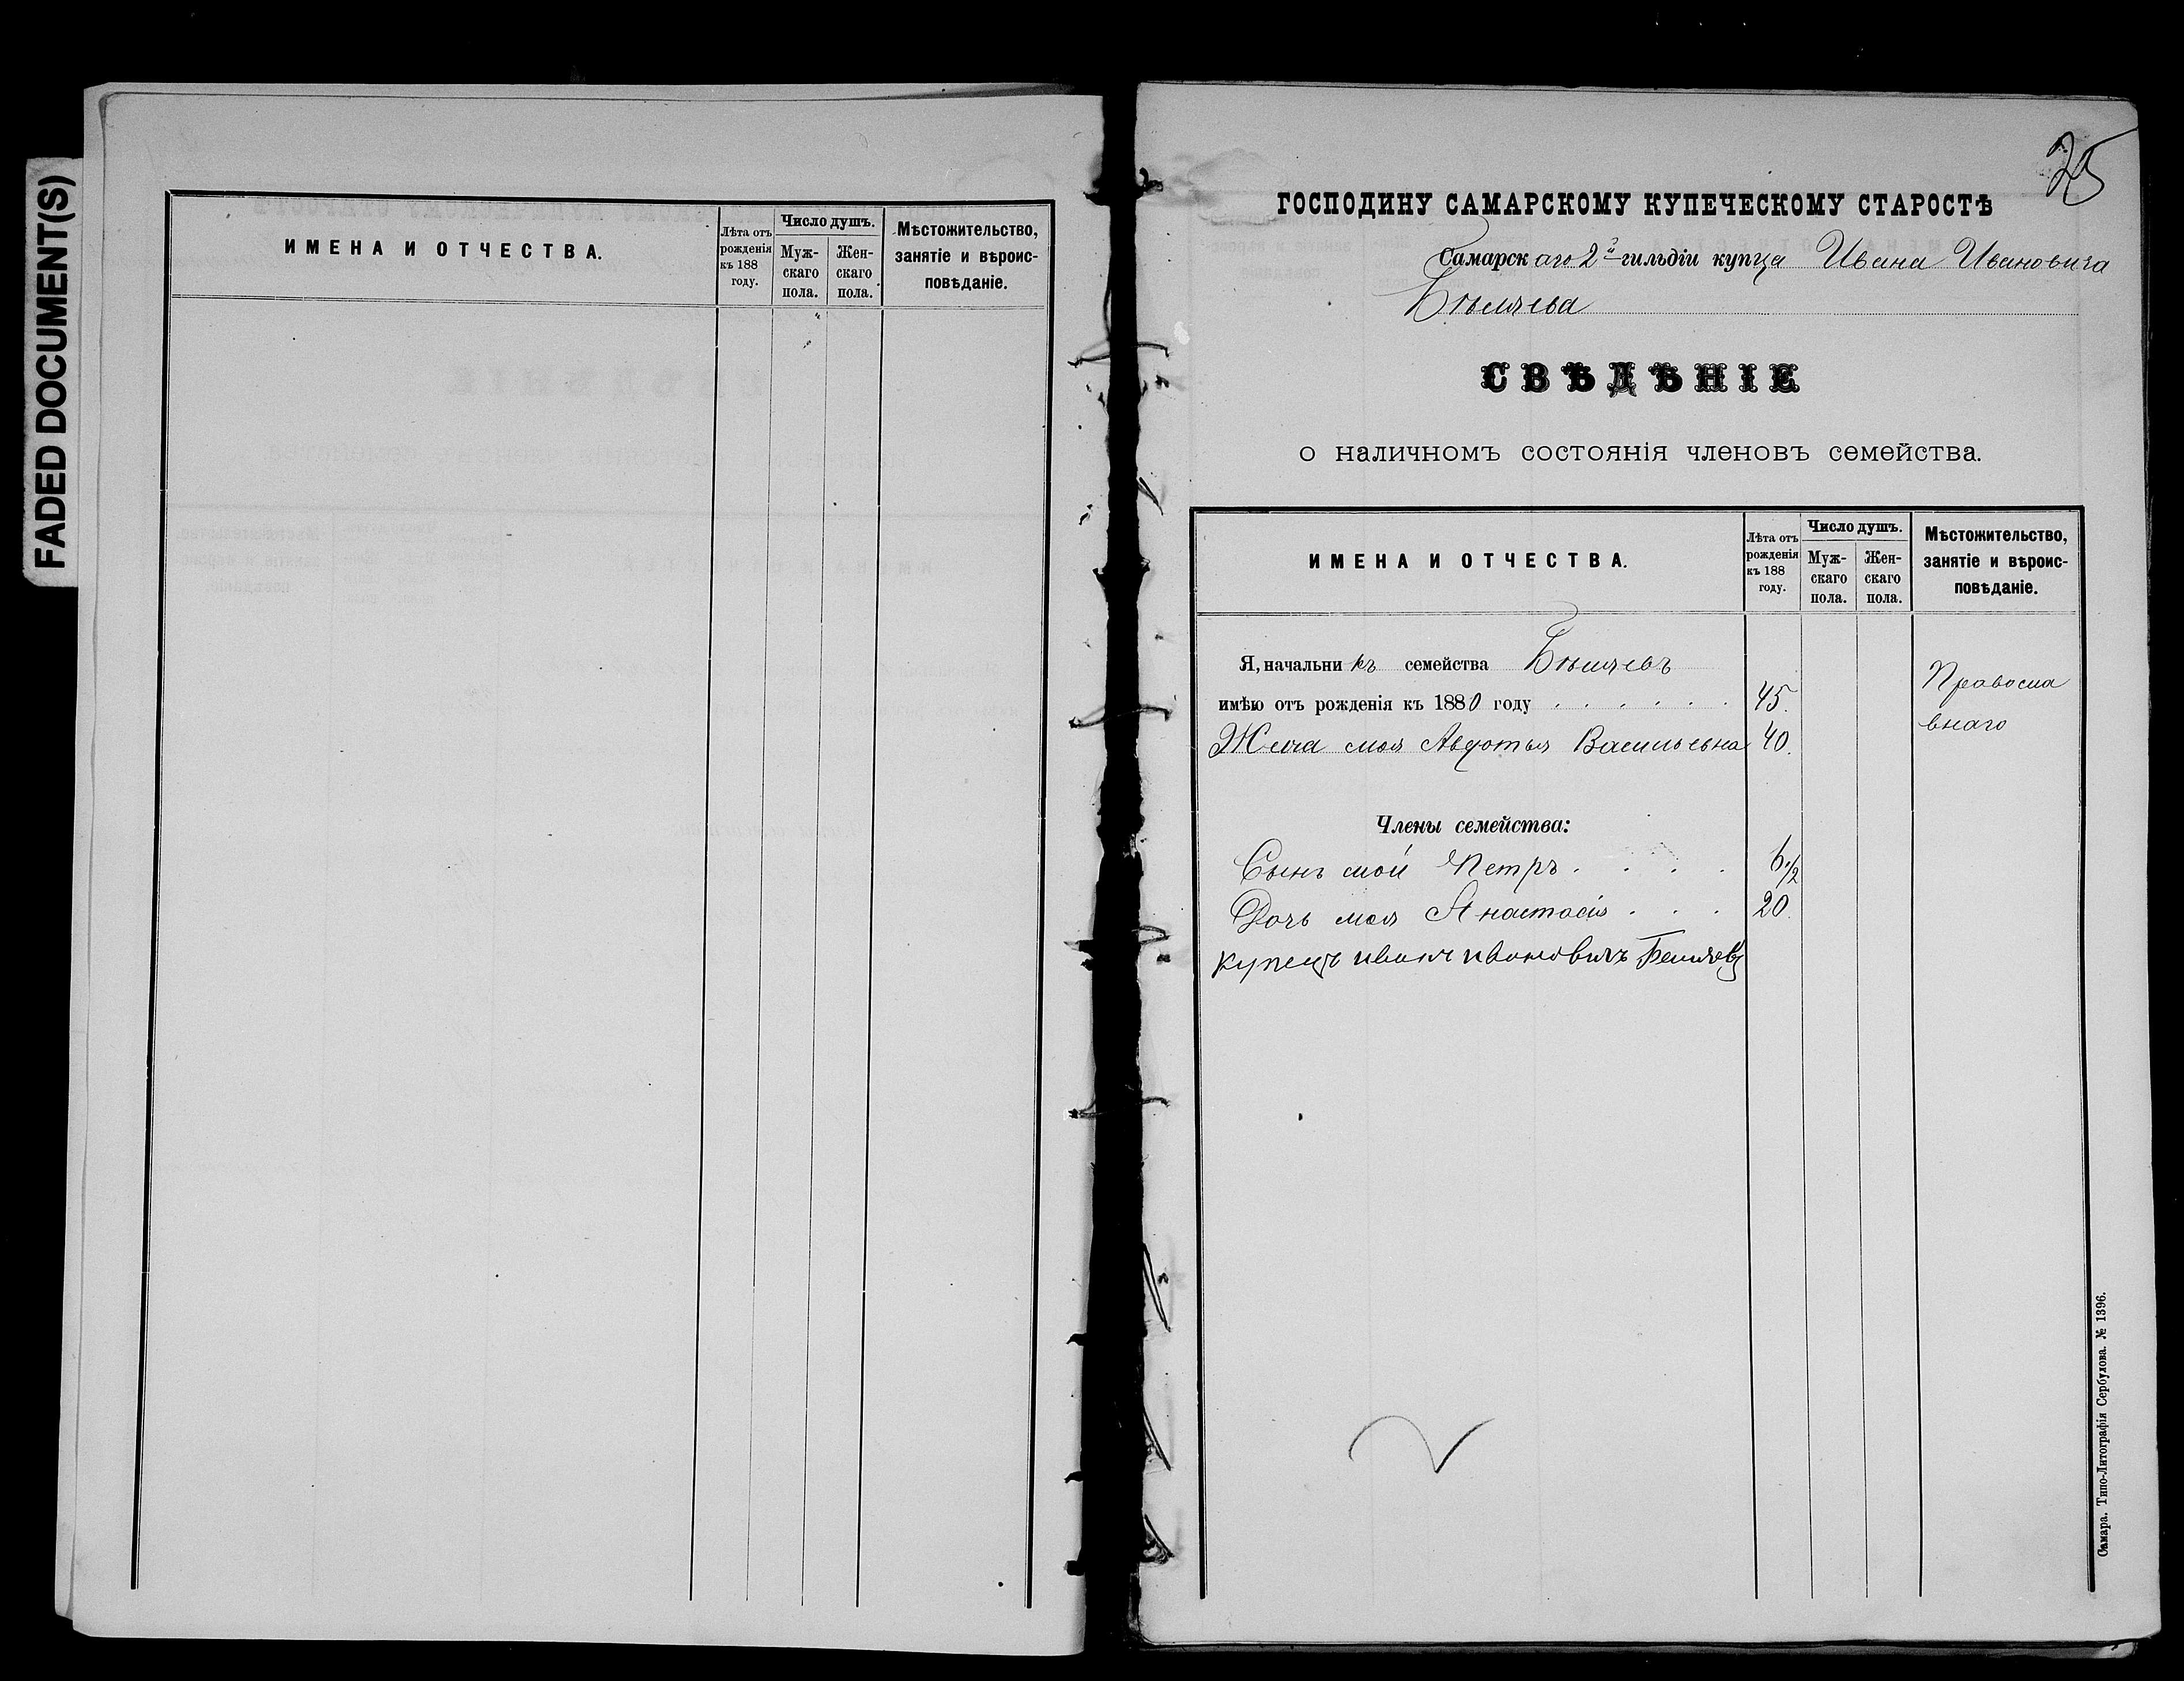 FADED DOCUMENT(S)
ИМЕНА И ОТЧЕСТВА.
Лѣта отъ рожденія къ 188 году.
Число душъ.
Муж-скаго пола.
Жен-скаго пола.
Мѣстожительство, занятіе и вѣроис-повѣданіе.
25
ГОСПОДИНУ САМАРСКОМУ КУПЕЧЕСКОМУ СТАРОСТѢ
Самарскаго 2й гильдіи купца Ивана Ивановича
Бѣляева
СВѢДѢНІЕ
о наличномъ состоянія членовъ семейства.
ИМЕНА И ОТЧЕСТВА.
Лѣта отъ рожденія къ 188 году.
Число душъ.
Муж-скаго пола.
Жен-скаго пола.
Мѣстожительство, занятіе и вѣроис-повѣданіе.
Я, начальникъ семейства Бѣляевъ
имѣю отъ рожденія къ 1880 году . . . . . . 45.
Православнаго
Жена моя Авдотья Васильевна 40.
Члены семейства:
Сынъ мой Петръ . . . . 6 1/2
Дочь моя Анастасія . . . 20.
купецъ иванъ ивановичъ Беляевъ
Самара. Типо-Литографія Сербулова. № 1396.